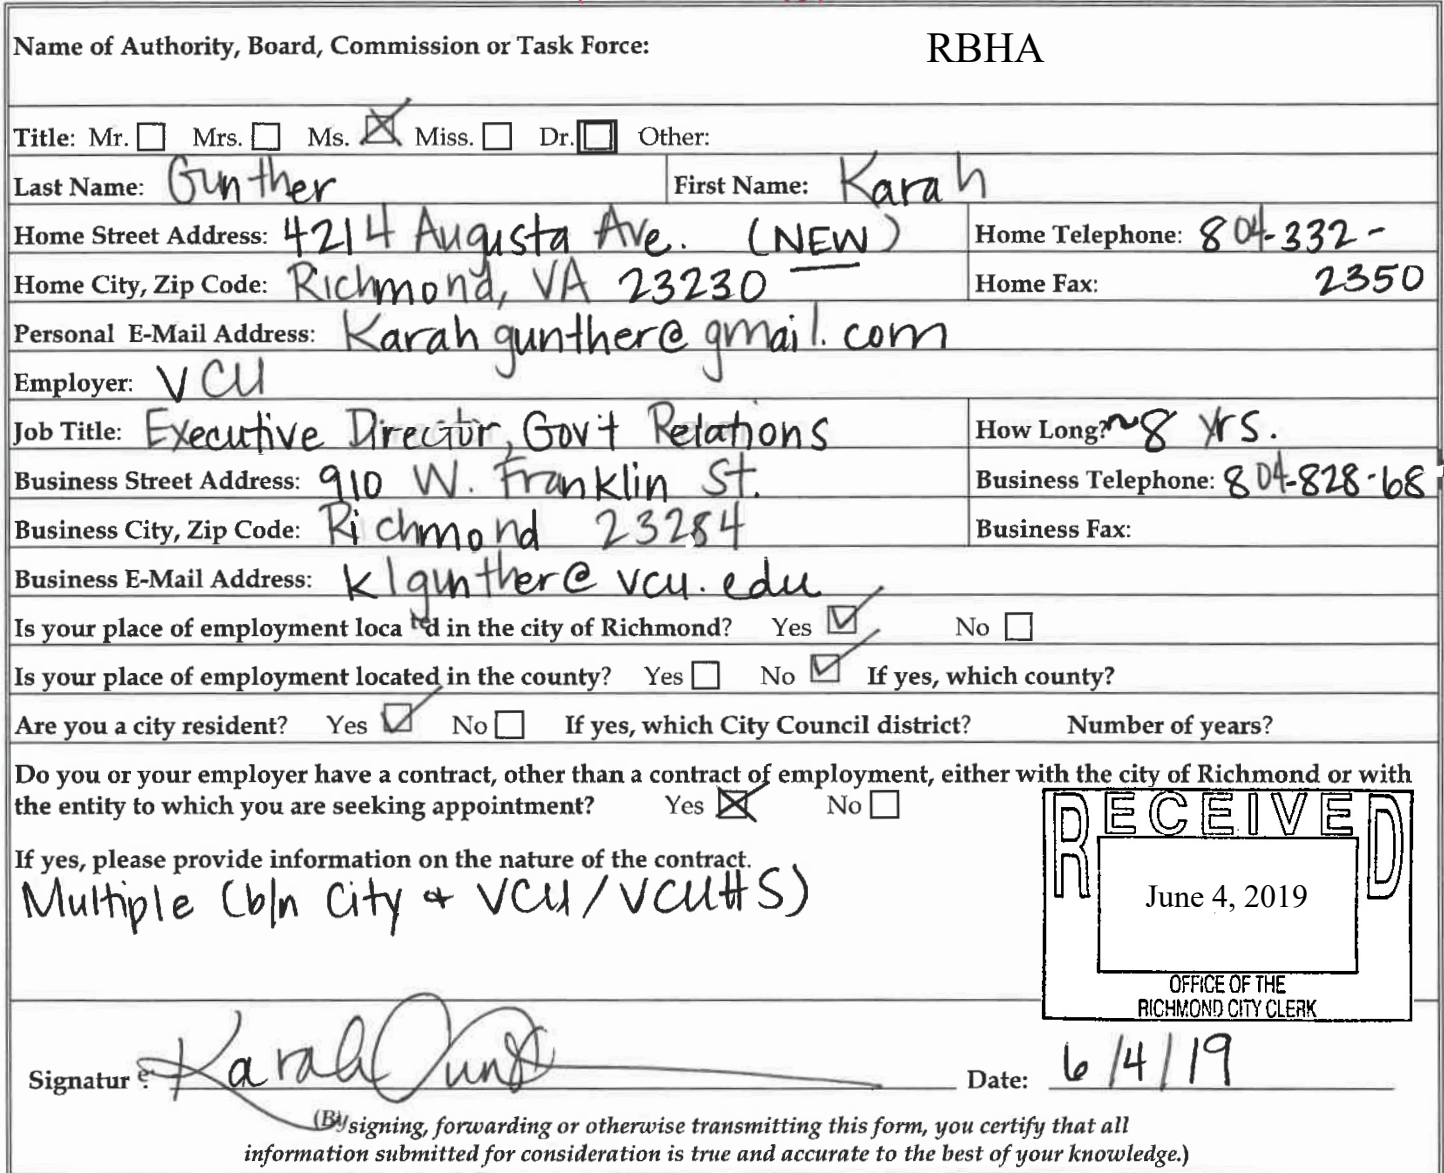 Name of Authority, Board, Commission or Task Force: RBHA
Title: Mr. Mrs. Ms. Miss. Dr. Other:
Last Name: Gunther First Name: Karah
Home Street Address: 4214 Augusta Ave. (NEW) Home Telephone: 804-332-
Home City, Zip Code: Richmond, VA 23230 Home Fax: 2350
Personal E-Mail Address: Karahgunther@gmail.com
Employer: VCU
Job Title: Executive Director, Gov't Relations How Long? ~8 yrs.
Business Street Address: 910 W. Franklin St. Business Telephone: 804-828-68
Business City, Zip Code: Richmond 23284 Business Fax:
Business E-Mail Address: klgunther@vcu.edu
Is your place of employment located in the city of Richmond? Yes No
Is your place of employment located in the county? Yes No If yes, which county?
Are you a city resident? Yes No If yes, which City Council district? Number of years?
Do you or your employer have a contract, other than a contract of employment, either with the city of Richmond or with
the entity to which you are seeking appointment? Yes No
RECEIVED
If yes, please provide information on the nature of the contract.
Multiple (b/n City & VCU/VCUHS)
June 4, 2019
OFFICE OF THE
RICHMOND CITY CLERK
Signature: Karah Gunth Date: 6/4/19
(By signing, forwarding or otherwise transmitting this form, you certify that all
information submitted for consideration is true and accurate to the best of your knowledge.)